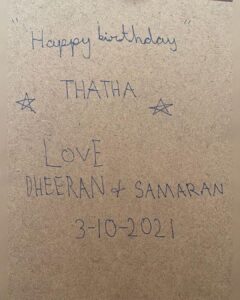 "Happy birthday"
THATHA
LOVE
DHEERAN & SAMARAN
3-10-2021